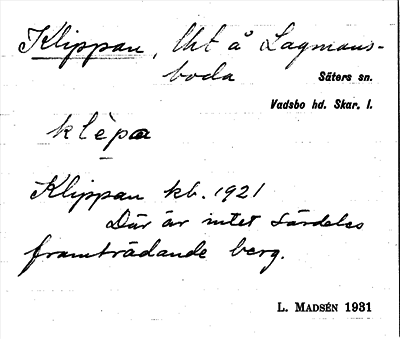 Klippan, Uht å Lagmans-
boda Säters sn.
Vadsbo hd. Skar. l.
klèpa
Klippan kb. 1921
Där är intet särdeles
framträdande berg.
L. MADSÉN 1931